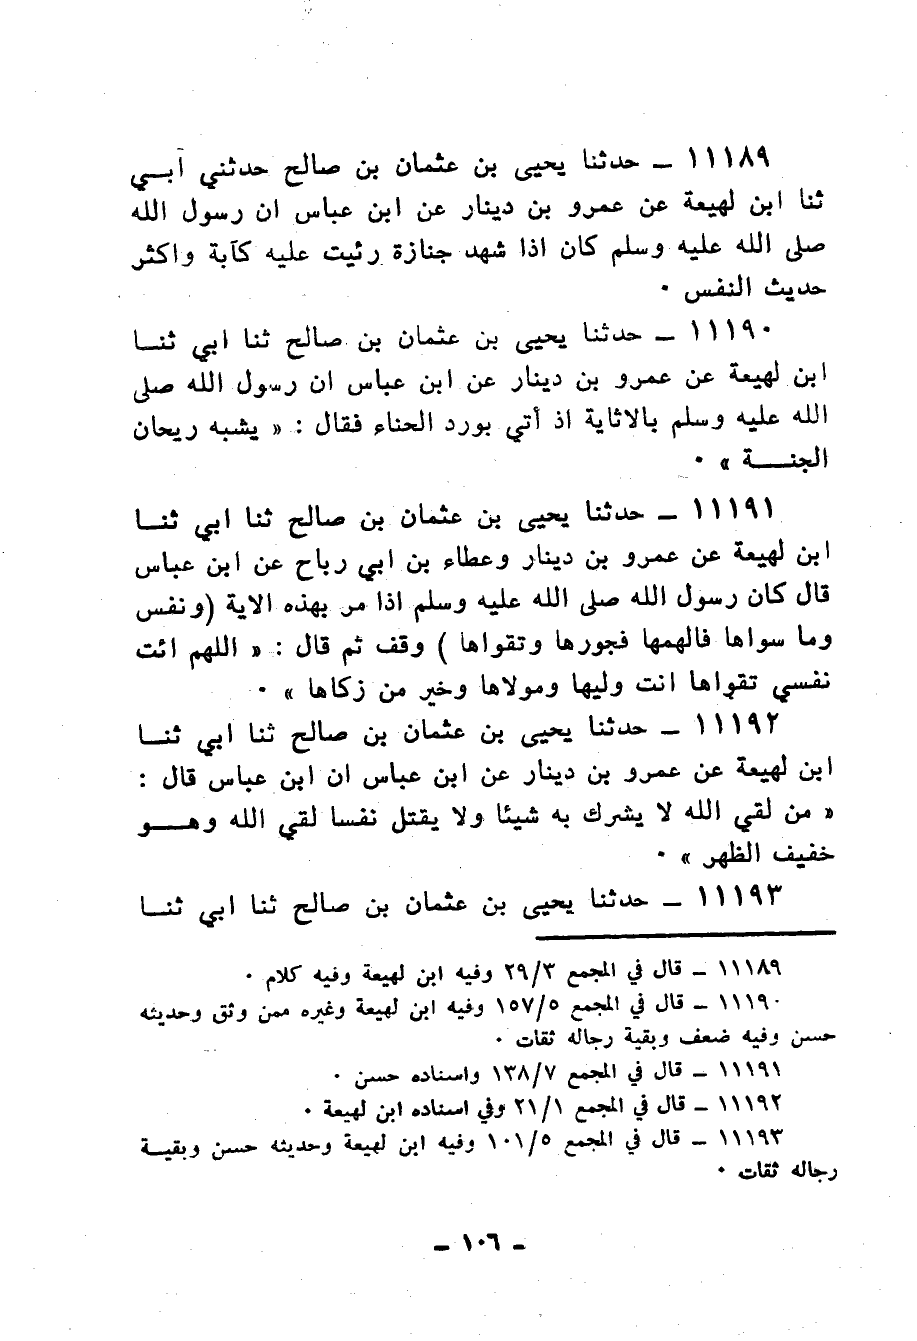 ١١١٨٩ ــ حدثنا يحيى بن عثمان بن صالح حدثني أبــي
ثنا ابن لهيعة عن عمرو بن دينار عن ابن عباس ان رسول الله
صلى الله عليه وسلم كان اذا شهد جنازة رئيت عليه كآبة واكثر
حديث النفس ٠
١١١٩٠ ــ حدثنا يحيى بن عثمان بن صالح ثنا ابي ثنــا
ابن لهيعة عن عمرو بن دينار عن ابن عباس ان رسول الله صلى
الله عليه وسلم بالاثاية اذ أتي بورد الحناء فقال : « يشبه ريحان
الجنـــــة » ٠
١١١٩١ ــ حدثنا يحيى بن عثمان بن صالح ثنا ابي ثنــا
ابن لهيعة عن عمرو بن دينار وعطاء بن ابي رباح عن ابن عباس
قال كان رسول الله صلى الله عليه وسلم اذا مر بهذه الاية (ونفس
وما سواها فالهمها فجورها وتقواها ) وقف ثم قال : « اللهم ائت
نفسي تقواها انت وليها ومولاها وخير من زكاها » ٠
١١١٩٢ ــ حدثنا يحيى بن عثمان بن صالح ثنا ابي ثنــا
ابن لهيعة عن عمرو بن دينار عن ابن عباس ان ابن عباس قال :
« من لقي الله لا يشرك به شيئا ولا يقتل نفسا لقي الله وهـــو
خفيف الظهر » ٠
١١١٩٣ ــ حدثنا يحيى بن عثمان بن صالح ثنا ابي ثنــا
١١١٨٩ ــ قال في المجمع ٢٩/٣ وفيه ابن لهيعة وفيه كلام ٠
١١١٩٠ ــ قال في المجمع ١٥٧/٥ وفيه ابن لهيعة وغيره ممن وثق وحديثه
حسن وفيه ضعف وبقية رجاله ثقات ٠
١١١٩١ ــ قال في المجمع ١٣٨/٧ واسناده حسن ٠
١١١٩٢ ــ قال في المجمع ٢١/١ وفي اسناده ابن لهيعة ٠
١١١٩٣ ــ قال في المجمع ١٠١/٥ وفيه ابن لهيعة وحديثه حسن وبقيــة
رجاله ثقات ٠
ــ ١٠٦ ــ